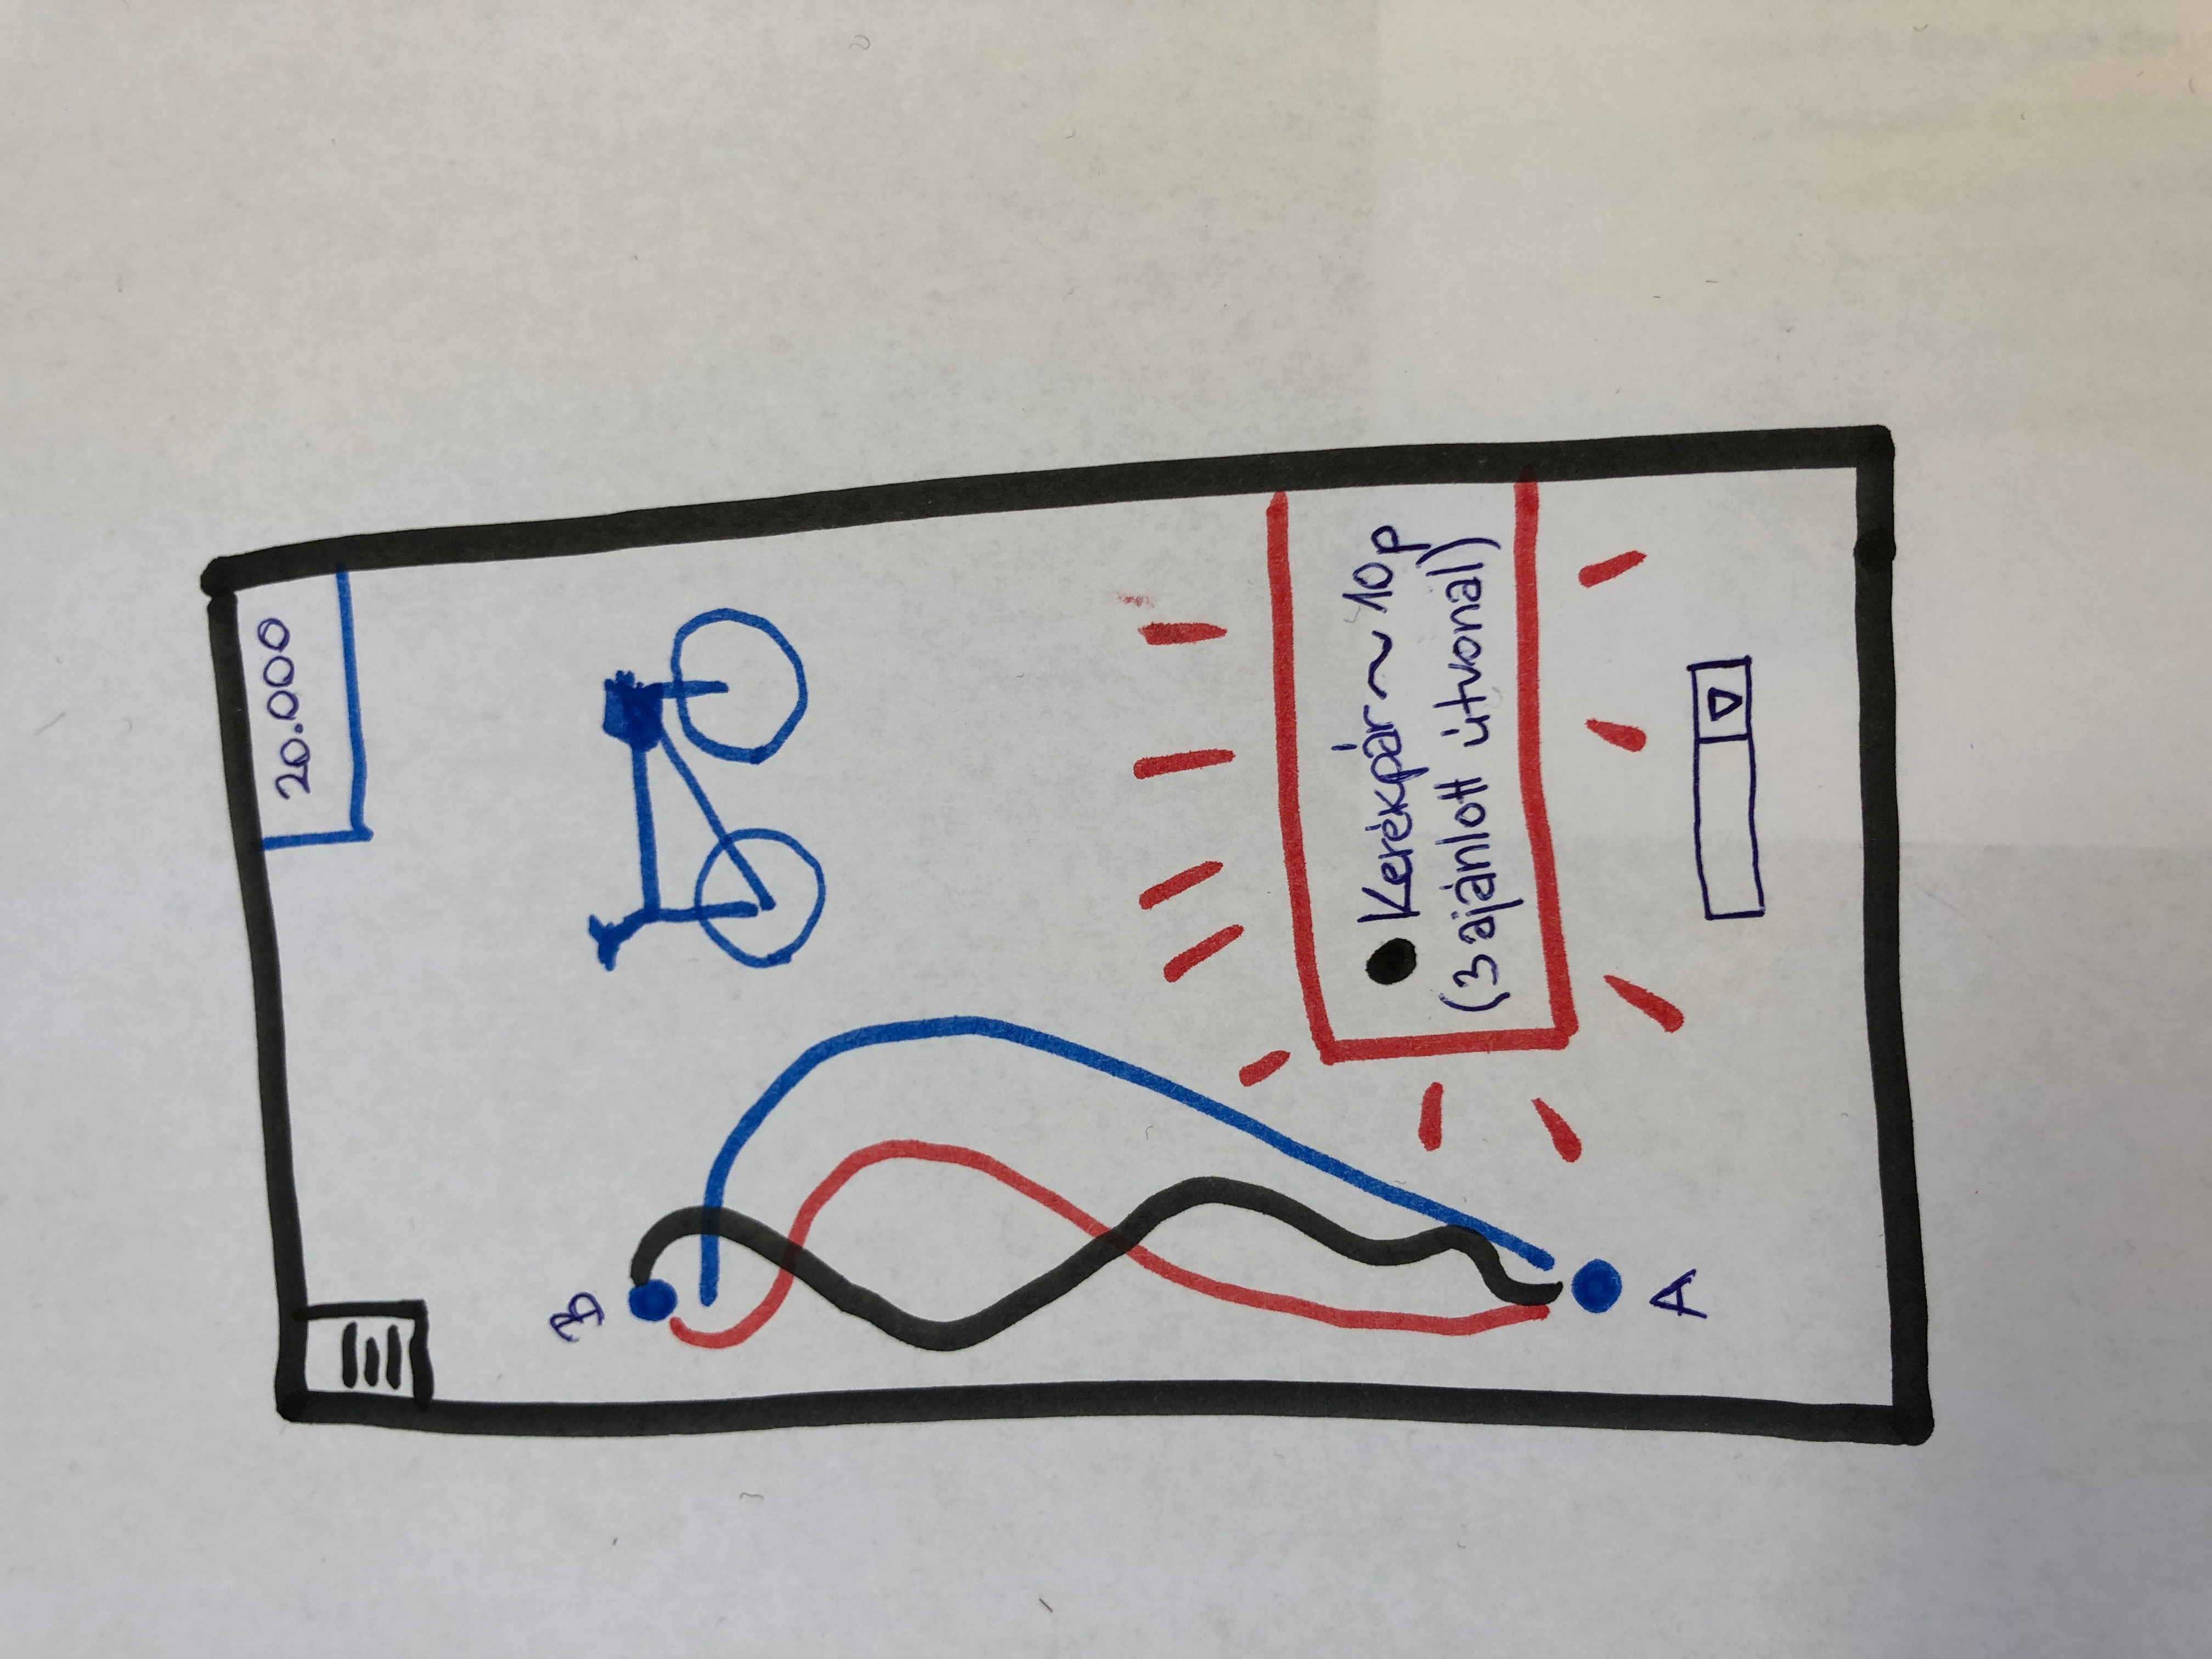 20.000
B
Kerékpár ~ 10p
(3 ajánlott útvonal)
A